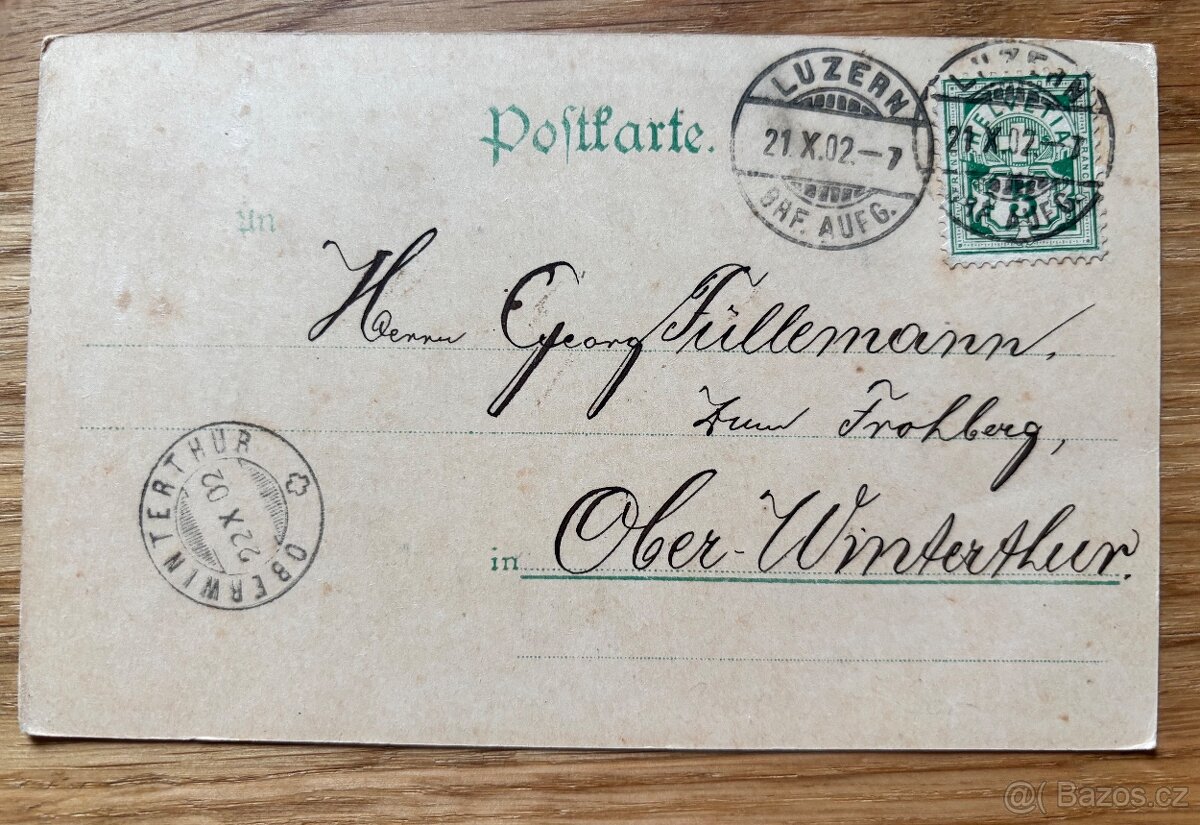 Postkarte.
LUZERN
21.X.02.–7
BRF. AUFG.
LUZERN
21.X.02.–7
BRF. AUFG.
HELVETIA
FRANCO
5
An
Herrn Georg Füllemann,
zum Frohberg,
in Ober-Winterthur.
OBERWINTERTHUR
22 X 02
@( Bazos.cz